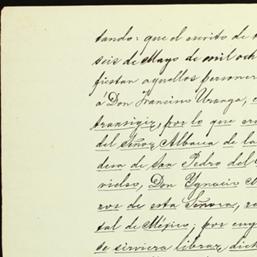 tando: que el escrito de
seis de Mayo de mil och
fiestan aquellos persone
á Don Francisco Uranga,
transigir, por lo que
del Señor Albacea de la
de San Pedro del
video, Don Ygnacio
ros de esta Señora,
tal de México; por
se sirviera librar dich